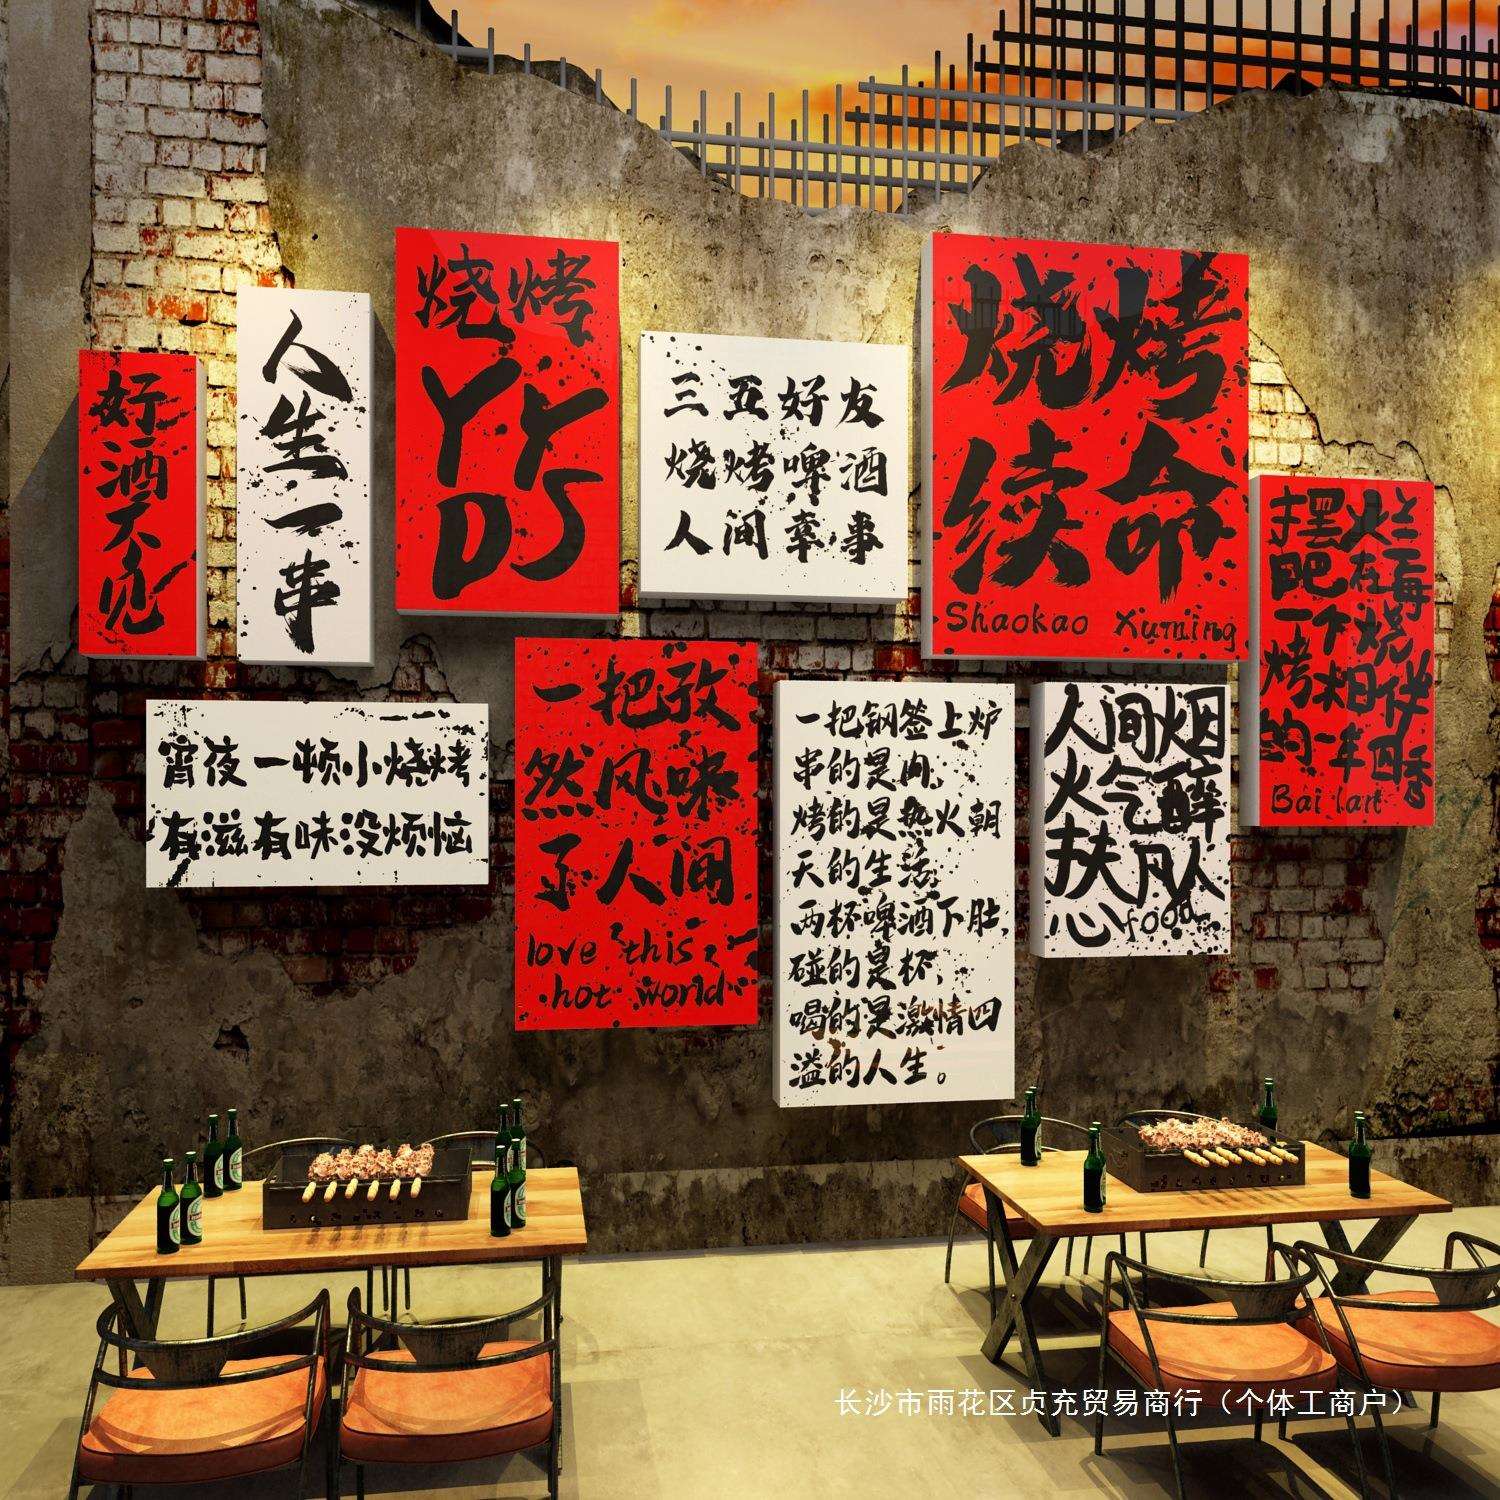 好酒不见
人生一串
烧烤
YY
DS
三五好友
烧烤啤酒
人间幸事
烧烤
续命
Shaokao Xuming
宵夜一顿小烧烤
有滋有味没烦恼
一把孜
然风味
了人间
love this
hot world
一把钢签上炉
串的是肉,
烤的是热火朝
天的生活
两杯啤酒下肚,
碰的是杯,
喝的是激情四
溢的人生。
人间烟
火气醉
扶凡人
心food
Bai lan
长沙市雨花区贞充贸易商行（个体工商户）